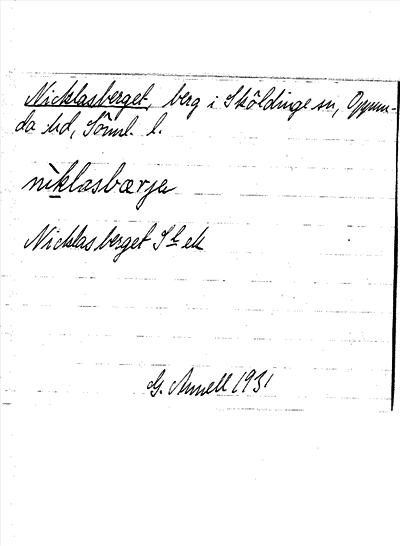 Nicklasberget, berg i Sköldinge sn, Oppun-
da hd, Sörml. l.
nìklasbærje
Nicklasberget St ek
G. Annell 1931